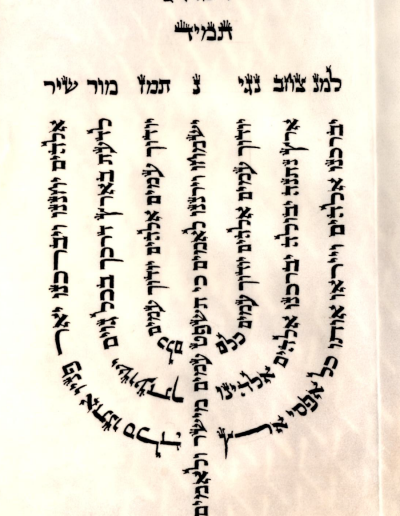 תמיד
למנ צחב נגי נ תמז מור שיר
אלהים יחננו ויברכנו יאר פניו אתנו סלה
לדעת בארץ דרכך בכל גוים ישועתך
יודוך עמים אלהים יודוך עמים כלם
ישמחו וירננו לאמים כי תשפט עמים מישור ולאמים
יודוך עמים אלהים יודוך עמים כלם
ארץ נתנה יבולה יברכנו אלהים אלהינו
יברכנו אלהים וייראו אותו כל אפסי ארץ